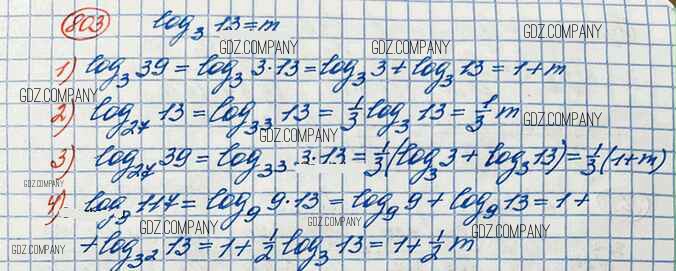 803 log₃ 13 = m
GDZ.COMPANY GDZ.COMPANY GDZ.COMPANY
1) log₃ 39 = log₃ 3·13 = log₃ 3 + log₃ 13 = 1 + m
GDZ.COMPANY
2) log₂₇ 13 = log₃³ 13 = 1/3 log₃ 13 = 1/3 m
GDZ.COMPANY GDZ.COMPANY
3) log₂₇ 39 = log₃³ 3·13 = 1/3 (log₃ 3 + log₃ 13) = 1/3 (1 + m)
GDZ.COMPANY GDZ.COMPANY
4) log 117 = log₉ 9·13 = log₉ 9 + log₉ 13 = 1 +
GDZ.COMPANY GDZ.COMPANY
+ log₃² 13 = 1 + 1/2 log₃ 13 = 1 + 1/2 m
GDZ.COMPANY GDZ.COMPANY GDZ.COMPANY